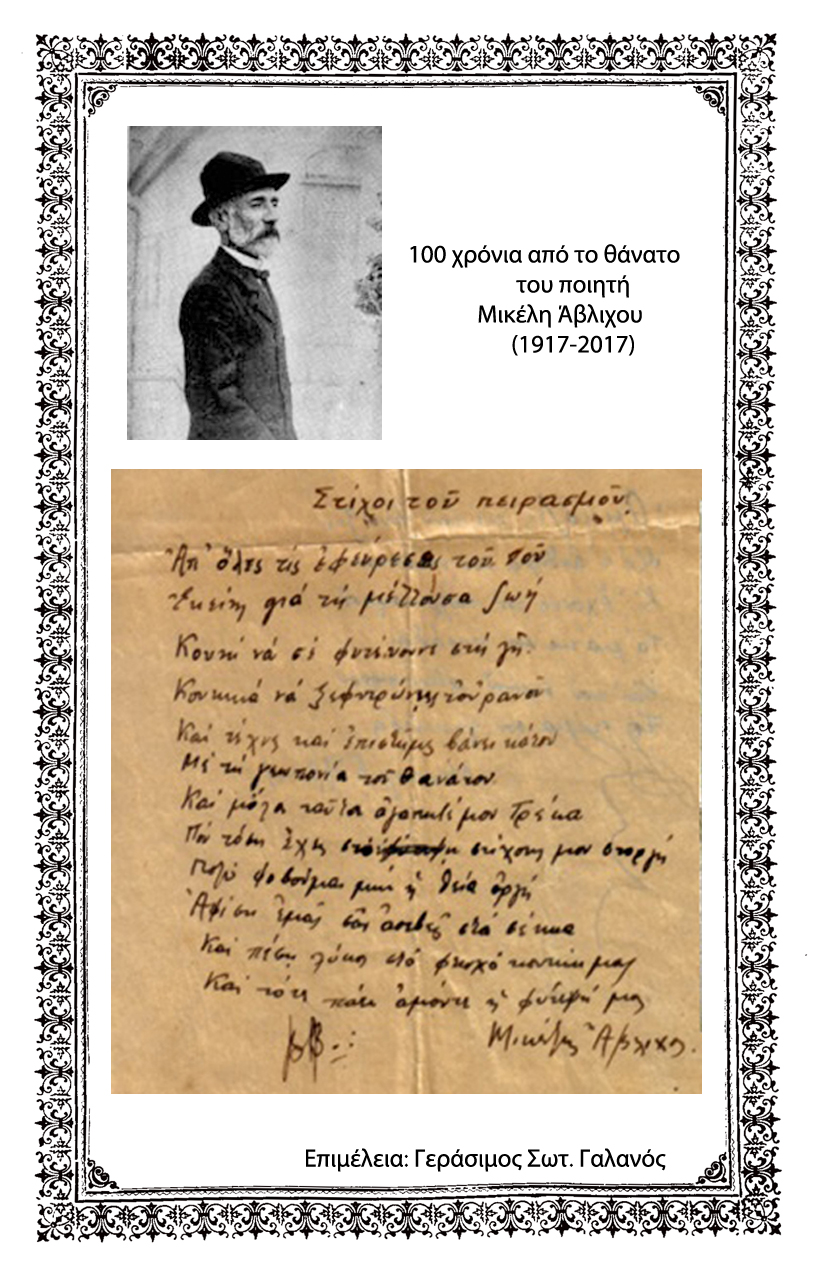 100 χρόνια από το θάνατο
του ποιητή
Μικέλη Άβλιχου
(1917-2017)
Στίχοι τοῦ πειρασμοῦ
Ἀπ' ὅλες τὶς ἐφευρέσεις τοῦ
γιὰ τὴ μέλλουσα ζωή
Κουκὶ νὰ σὲ φυτεύουνε στὴ γῆ
Κουκκιὰ νὰ ξεφυτρώνῃς τοὐρανοῦ
Καὶ τέχνες καὶ ἐπιστῆμες βάνει κάτου
Μὲ τὴ γεωπονία τοῦ θανάτου
Καὶ μόλα ταῦτα ἀγαπητέ μου Τρέκα
Ποὺ τόση ἔχεις στοὺς στίχους μου στοργή
Πολὺ φοβούμαι μὴ ἡ θεία ὀργή
Ἀφίσῃ ἐμᾶς σὰν ἀσεβεῖς στὰ
Καὶ πέσῃ λύκος στὸ φτωχὸ κουκί μας
Καὶ τότε πάει ἀμόντε ἡ φύτεψή μας
Μικέλης Ἄβλιχος.
Επιμέλεια: Γεράσιμος Σωτ. Γαλανός